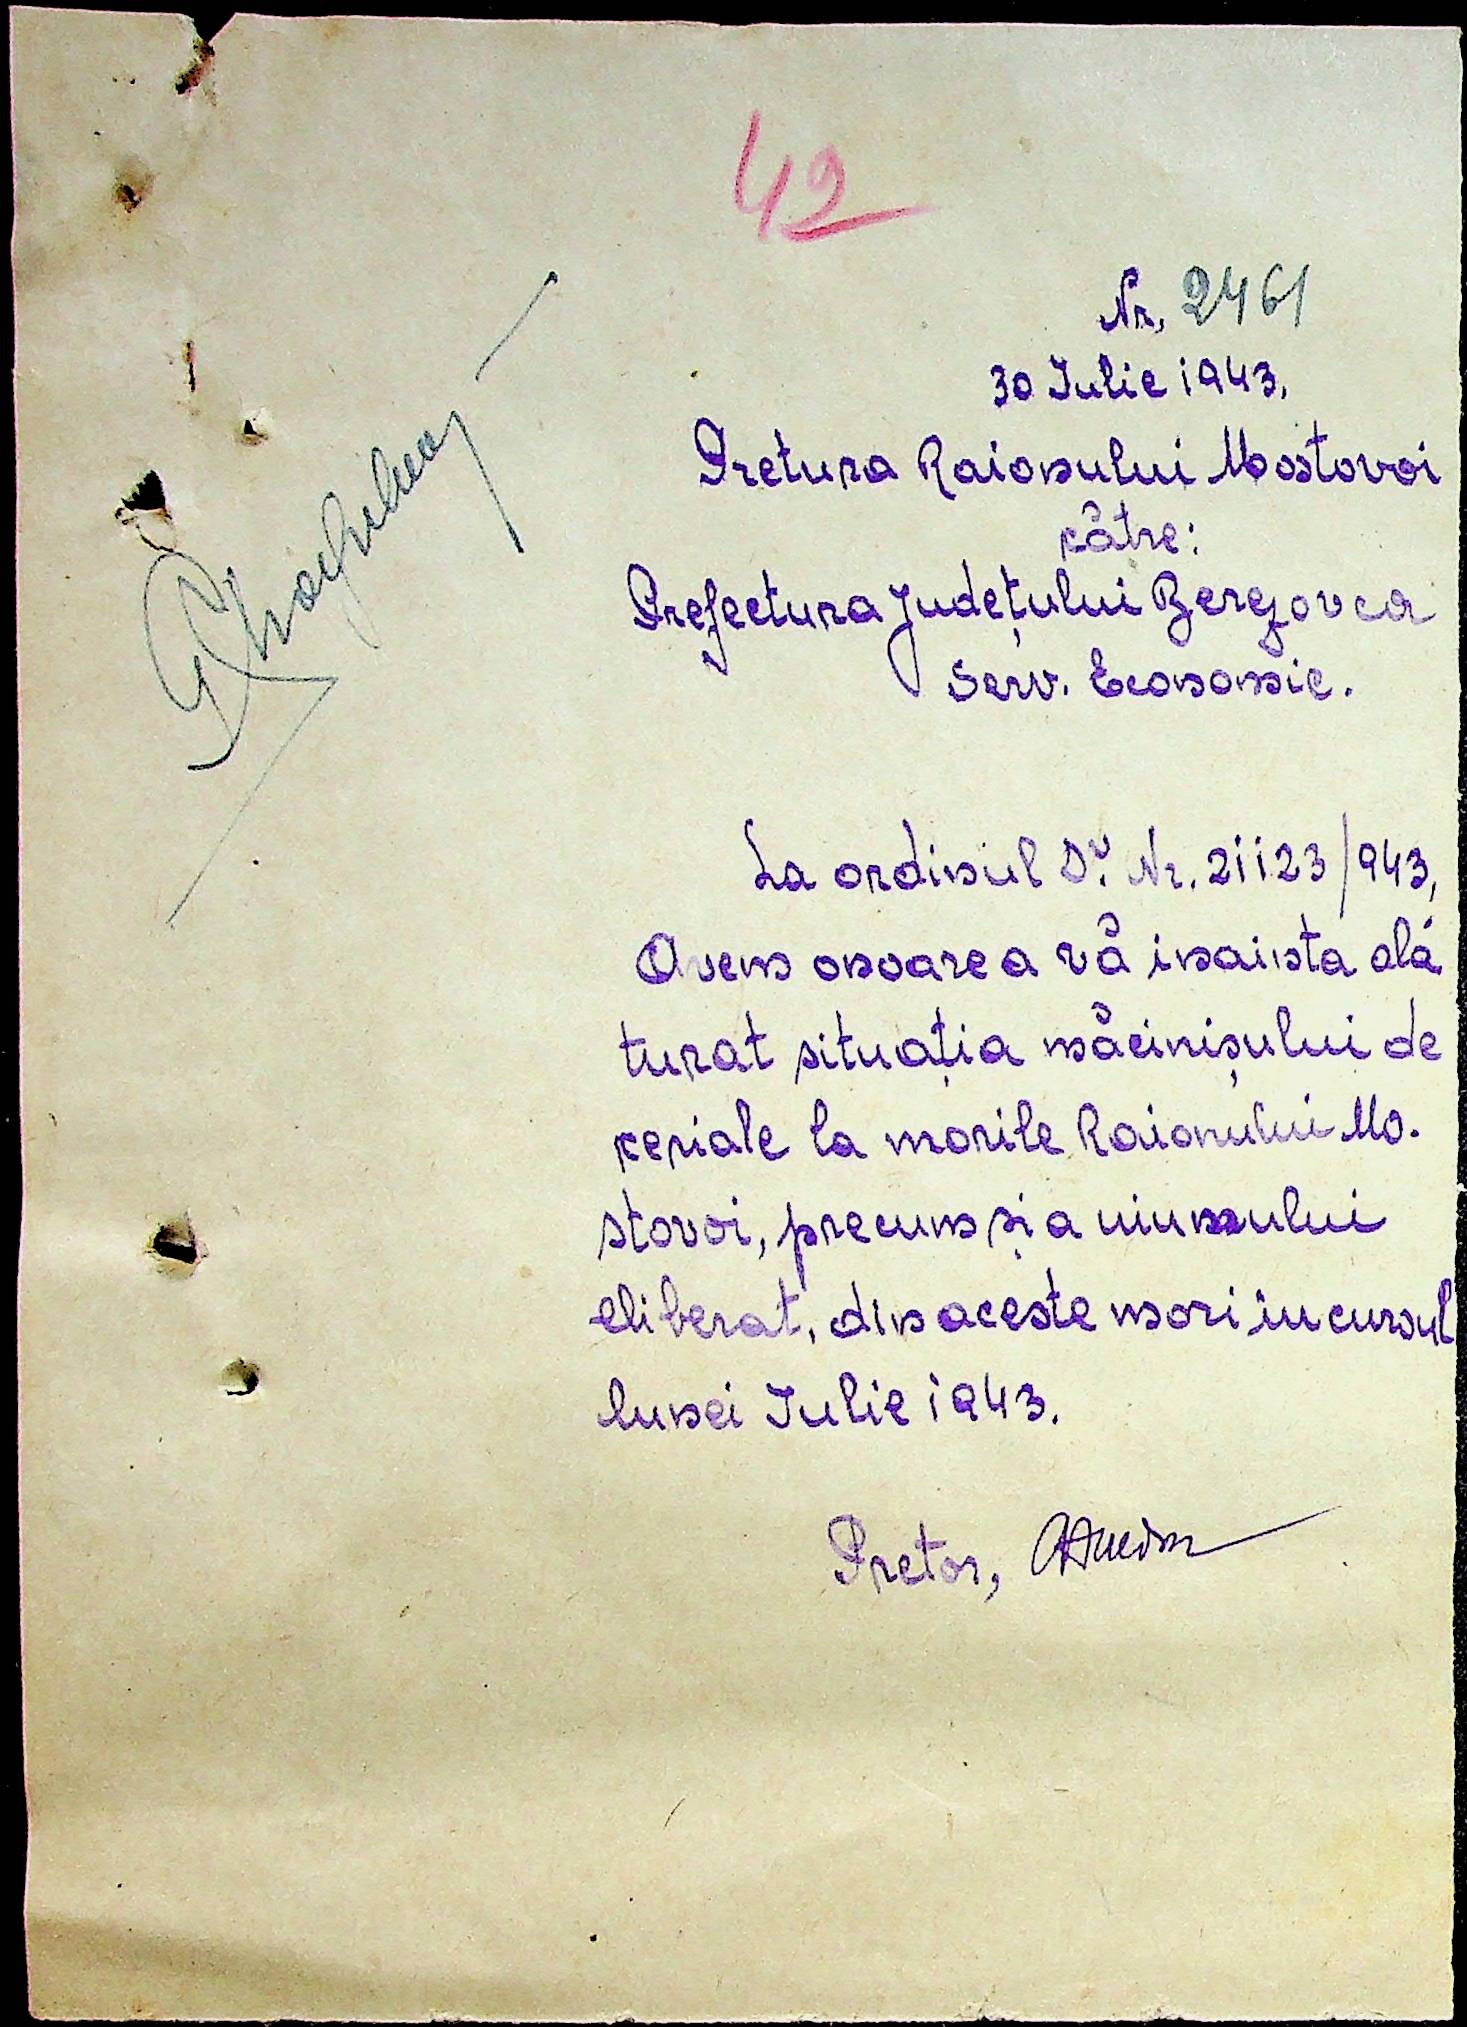 42
Nr. 2461
30 Iulie 1943.
Pretura Raionului Mostovoi
către:
Prefectura Județului Berezovca
Serv. Economic.
La ordinul Dv. Nr. 21123/943,
Avem onoarea vă inainta ală
turat situația măcinișului de
ceriale la morile Raionului Mo-
stovoi, precum și a uiumului
eliberat, din aceste mori in cursul
lunei Iulie 1943.
Pretor,